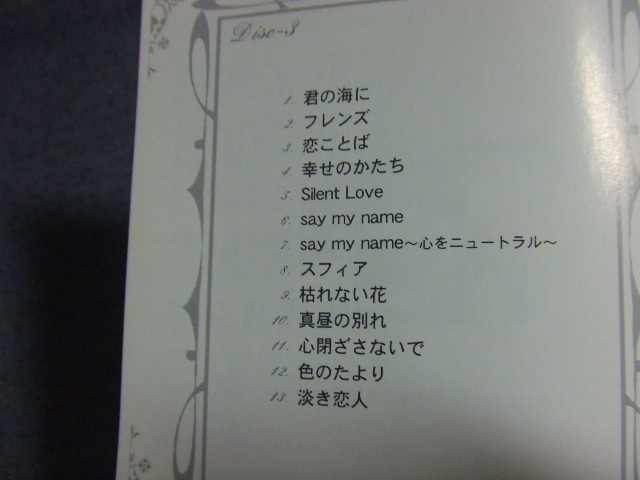 Disc-3
1. 君の海に
2. フレンズ
3. 恋ことば
4. 幸せのかたち
5. Silent Love
6. say my name
7. say my name〜心をニュートラル〜
8. スフィア
9. 枯れない花
10. 真昼の別れ
11. 心閉ざさないで
12. 色のたより
13. 淡き恋人